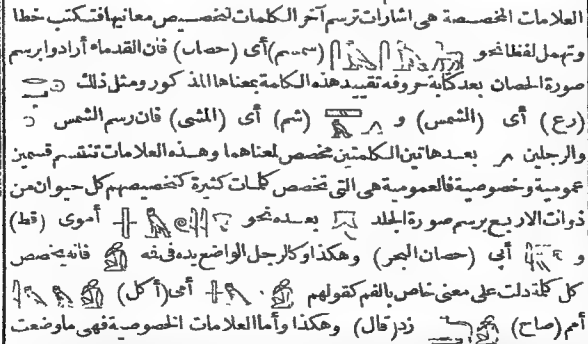 العلامات المخصصة هى اشارات ترسم آخر الكلمات لتخصيص معانيها فتكتب خطا
وتهمل لفظا نحو (سمسم) أى (حصان) فان القدماء أرادوا برسم
صورة الحصان بعد كتابة حروفه تقييد هذه الكلمة بمعناها المذكور ومثل ذلك
(رع) أى (الشمس) و (شم) أى (المشى) فان رسم الشمس
والرجلين بعد هاتين الكلمتين مخصص لمعناهما وهذه العلامات تنقسم قسمين
عمومية وخصوصية فالعمومية هى التى تخصص كلمات كثيرة كتخصيصهم كل حيوان من
ذوات الاربع برسم صورة الجلد بعده نحو أموى (قط)
و أبى (حصان البحر) وهكذا وكالرجل الواضع يده فى فه فانه يخصص
كل كلمة دلت على معنى خاص بالفم كقولهم أمى (أكل)
أم (صاح) زد (قال) وهكذا وأما العلامات الخصوصية فهى ما وضعت